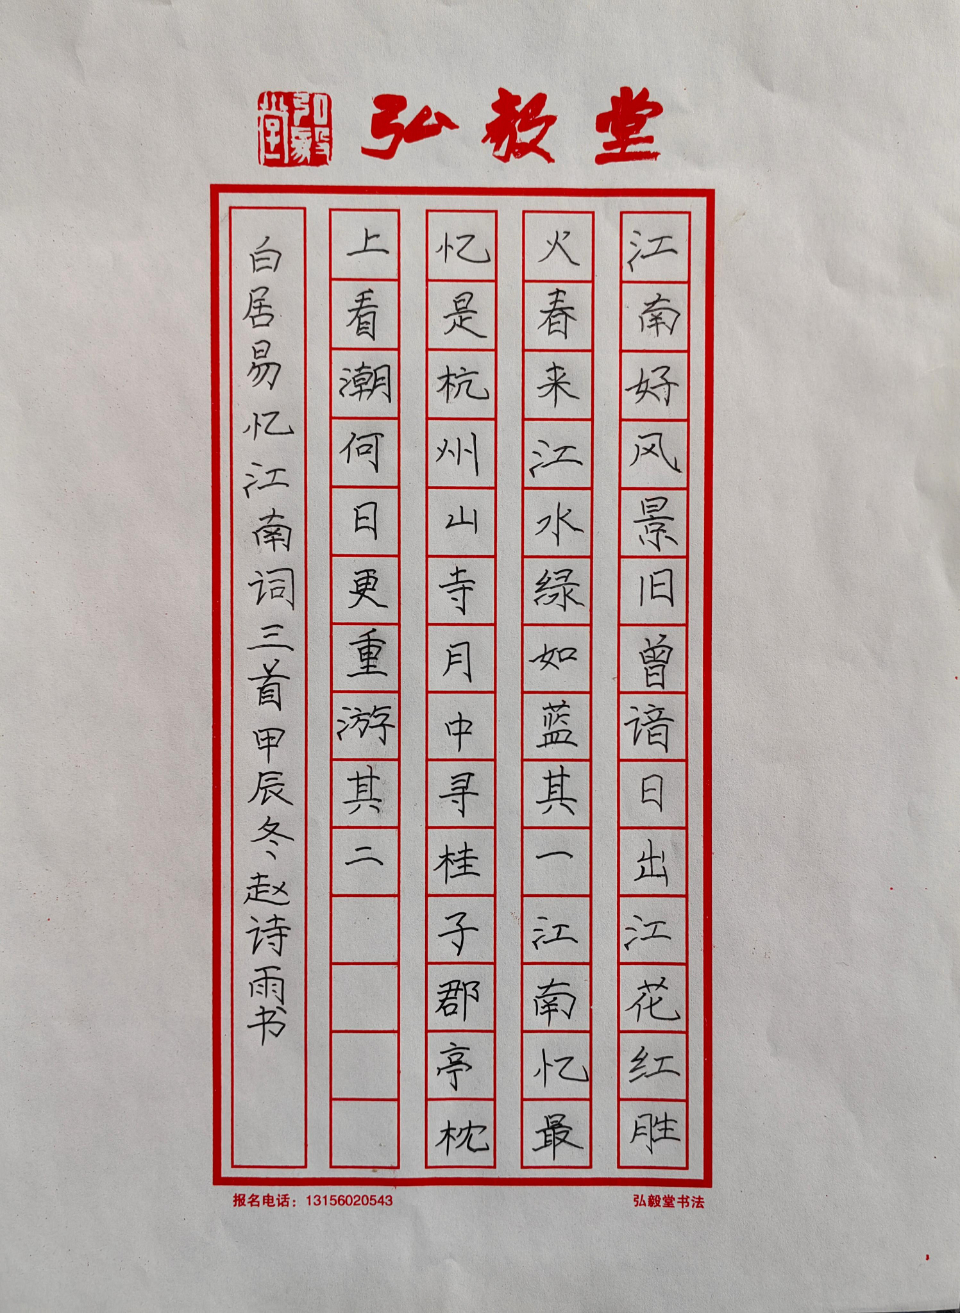 弘毅堂
弘毅堂
江南好风景旧曾谙日出江花红胜
火春来江水绿如蓝其一江南忆最
忆是杭州山寺月中寻桂子郡亭枕
上看潮何日更重游其二
白居易忆江南词三首甲辰冬赵诗雨书
报名电话：13156020543
弘毅堂书法